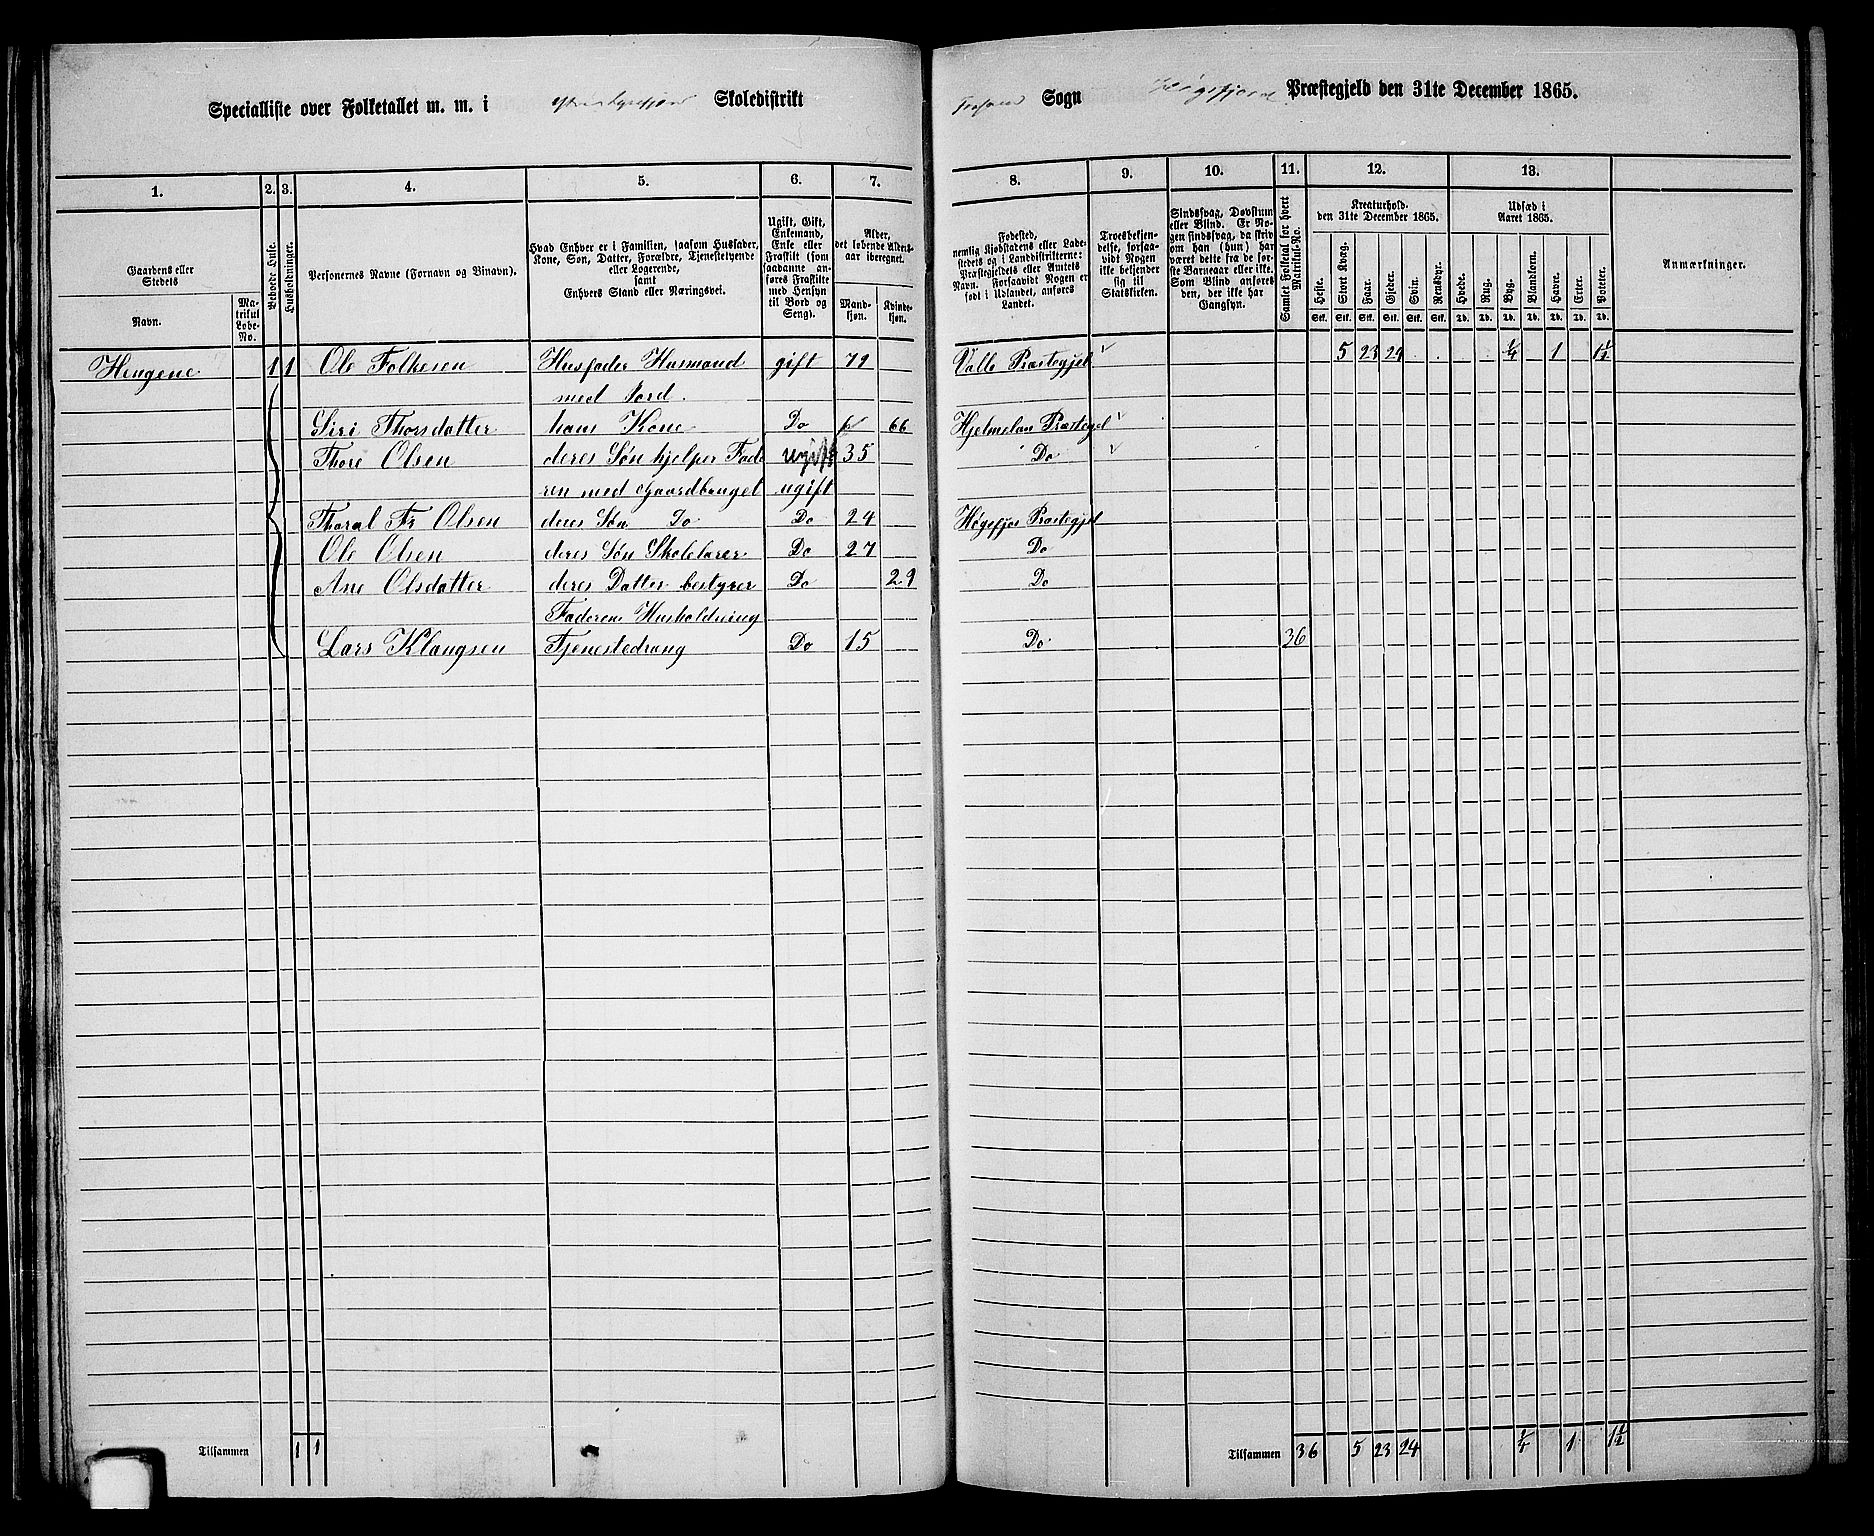 Specialliste over Folketallet m. m. i Skoledistrikt
Sogn Høgsfjord Præstegjeld den 31te December 1865.
1. 2. 3. 4. 5. 6. 7.
8. 9. 10. 11. 12. 13.
Gaardens eller Stedets
Navn.
Matrikul Løbe-No.
Beboede Huse.
Husholdninger.
Personernes Navne (Fornavn og Binavn).
Hvad Enhver er i Familien, saasom Husfader,
Kone, Søn, Datter, Forældre, Tjenestetyende
eller Logerende,
samt
Enhvers Stand eller Næringsvei.
Ugift, Gift,
Enkemand,
Enke eller
Fraskilt (som
saadanne an-
føres Fraskilte
med Hensyn
til Bord og
Seng).
Alder,
det løbende Alders-
aar iberegnet.
Mand-
kjøn.
Kvinde-
kjøn.
Fødested,
nemlig Kjøbstadens eller Lade-
stedets og i Landdistrikterne:
Præstegjeldets eller Amtets
Navn. Forsaavidt Nogen er
født i Udlandet, anføres
Landet.
Troesbekjen-
delse, forsaa-
vidt Nogen
ikke bekjender
sig til
Statskirken.
Sindssvag, Døvstum
eller Blind. Er No-
gen sindssvag, da skriv
om han (hun) har
været dette fra de før-
ste Barneaar eller ikke.
Som Blind anføres
den, der ikke har
Gangsyn.
Samlet Folketal for hvert
Matrikul-No.
Kreaturhold.
den 31te December 1865.
Heste. Stort Kvæg. Faar. Gjeder. Svin. Rensdyr.
Stk. Stk. Stk. Stk. Stk. Stk.
Udsæd i
Aaret 1865.
Hvede. Rug. Byg. Blandkorn. Havre. Erter. Poteter.
Td. Td. Td. Td. Td. Td. Td.
Anmærkninger.
Hengene 1 1 Ole Folkesen Husfader Husmand gift 79 Valle Præstegjel 5 23 24 ¼ 1 1½
med Jord.
Siri Thorsdatter hans Kone Do 66 Hjelmelan Præstegel
Thore Olsen deres Søn hjelper Fade 35 Do
ren med Gaardbruget ugift
Olsen deres Søn Do Do 24 Høgsfjor Præstegjel
Ole Olsen deres Søn Skolelærer Do 27 Do
Ane Olsdatter deres Datter bestyrer Do 29 Do
Faderens Husholdning
Lars Klaugsen Tjenestedrang Do 15 Do 36
Tilsammen 1 1
Tilsammen 36 5 23 24 ¼ 1 1½